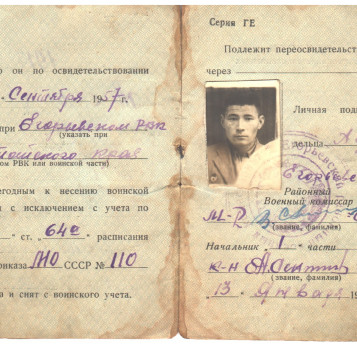 о он по освидетельствовании
Сентября 1957 г.
при Егорьевском РВК
(указать при
ком РВК или воинской части)
егодным к несению воинской
и с исключением с учета по
" ст. 64а " расписания
риказа МО СССР № 110
и снят с воинского учета.
Серия ГЕ
Подлежит переосвидетельст
через
Личная под
дельца
Районный
Военный комиссар
М-р
(звание, фамилия)
Начальник 1 части
к-н
(звание, фамилия)
13 " Января 19